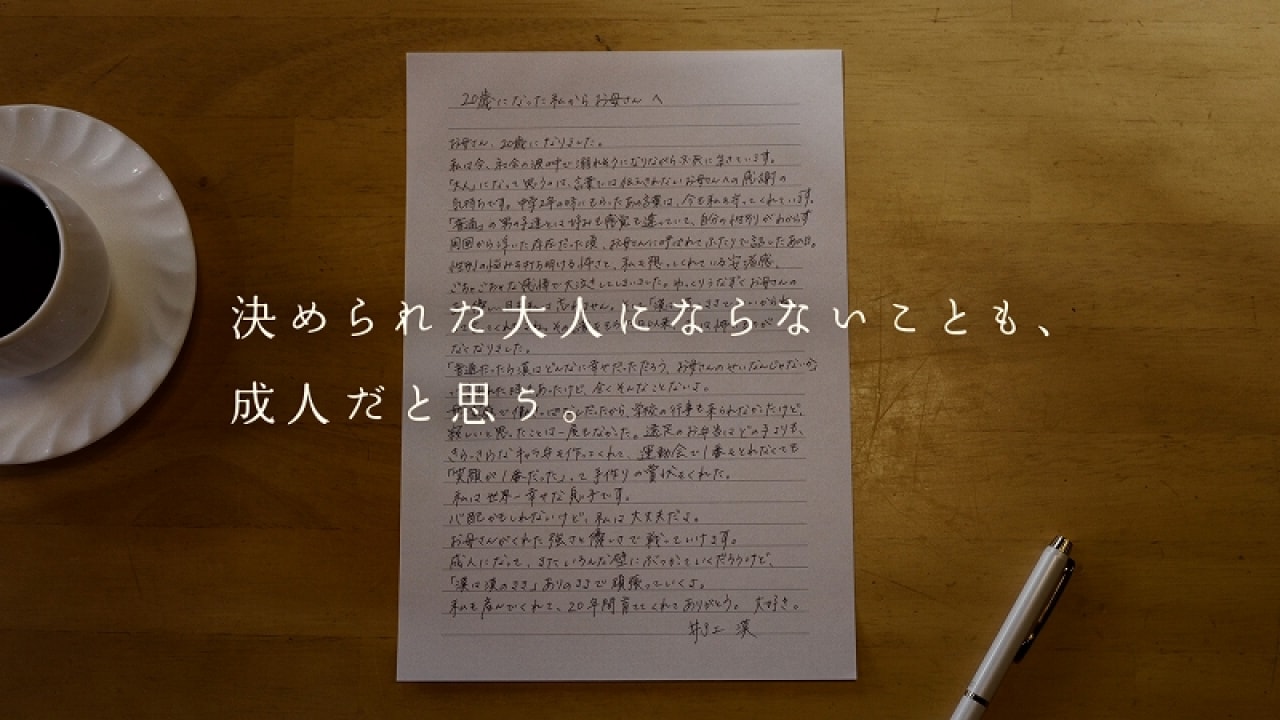 20歳になった私からお母さんへ
お母さん、20歳になりました。
私は今、社会の波の中で溺れそうになりながら必死に生きています。
「大人」になって思うのは、言葉では伝えきれないお母さんへの感謝の
気持ちです。中学2年の時にもらったあの言葉は、今も私を守ってくれています。
「普通」の男の子達とは好みも感覚も違っていて、自分の性別がわからず
周囲から浮いた存在だった頃、お母さんに呼ばれてふたりで話したあの日。
性別の悩みを打ち明ける怖さと、私を想ってくれている安堵感、
ごちゃごちゃな感情で大泣きしてしまいました。ゆっくりうなずくお母さんの
決められた大人にならないことも、
なくなりました。
「普通だったら漢はどんなに幸せだっただろう、お母さんのせいなんじゃないか」
あったけど、全くそんなことないよ。
成人だと思う。
だったから、学校の行事も来られなかったけど、
寂しいと思ったことは一度もなかった。遠足のお弁当はどの子よりも、
きらっきらなキャラ弁を作ってくれて、運動会で1番をとれなくても
「笑顔が1番だった」って手作りの賞状をくれた。
私は世界一幸せな息子です。
心配かもしれないけど、私は大丈夫だよ。
お母さんがくれた強さと優しさで戦っていけます。
成人になって、またいろんな壁にぶつかっていくだろうけど、
「漢は漢のまま」ありのままで頑張っていくよ。
私を産んでくれて、20年間育ててくれてありがとう。大好き。
井上 漢